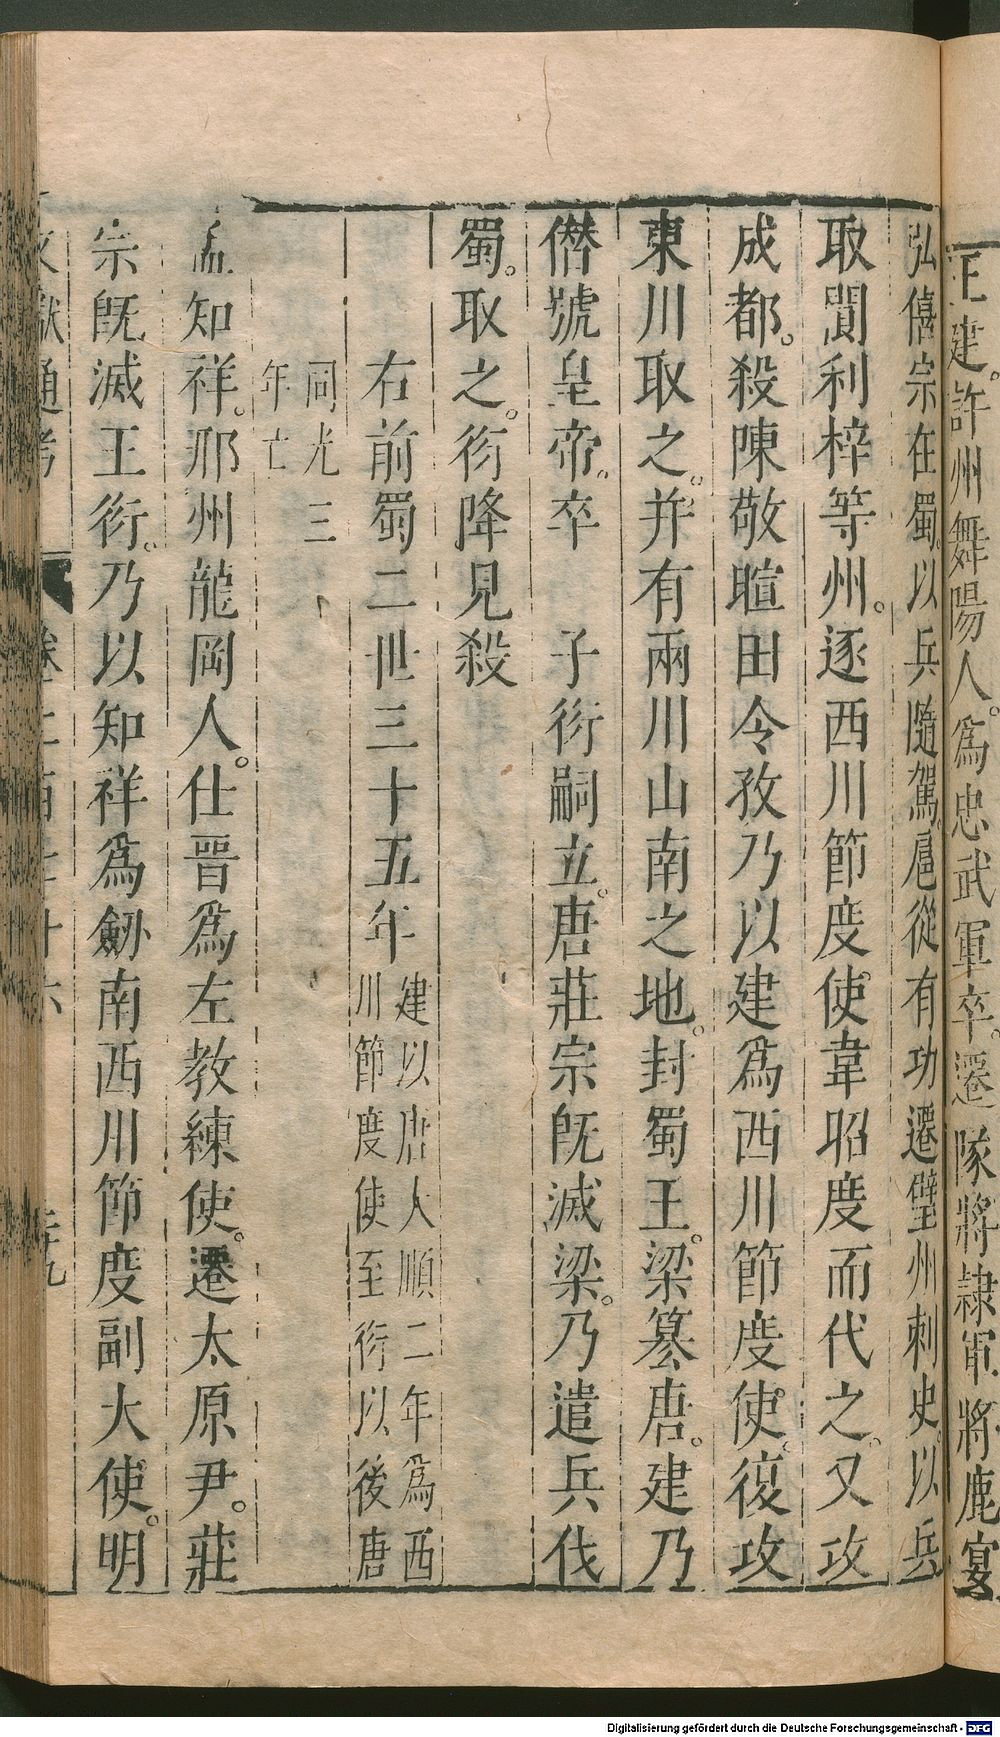 王建。許州舞陽人。為忠武軍卒。遷隊將隷軍將鹿宴
弘僖宗在蜀。以兵隨駕。扈從有功遷璧州刺史。以兵
取閬利梓等州。逐西川節度使韋昭度而代之。又攻
成都。殺陳敬暄田令孜乃以建為西川節度使。復攻
東川取之。并有兩川山南之地。封蜀王。梁簒唐。建乃
僣號皇帝。卒　子衍嗣立。唐莊宗旣滅梁。乃遣兵伐
蜀。取之。衍降見殺
右前蜀二世三十五年
建以唐人順二年為西
川節度使至衍以後唐
同光三
年亡
孟知祥。邢州龍岡人。仕晉為左教練使。遷太原尹。莊
宗旣滅王衍。乃以知祥為劒南西川節度副大使。明
文獻通考
卷二百七十六
Digitalisierung gefördert durch die Deutsche Forschungsgemeinschaft - DFG